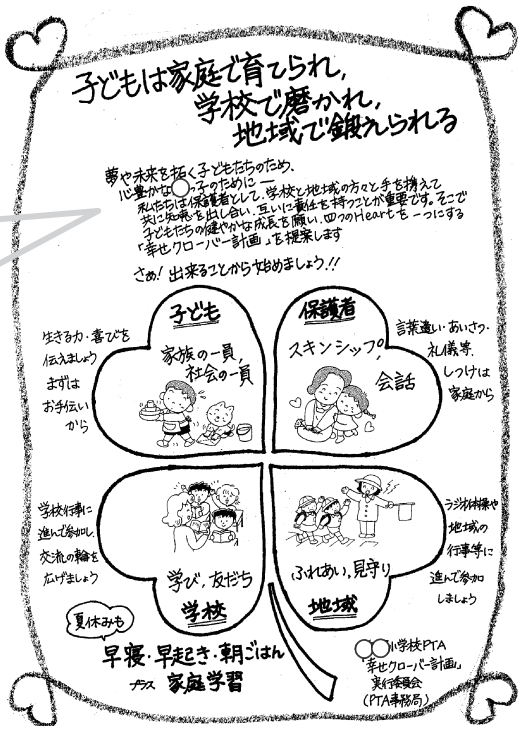 子どもは家庭で育てられ,
学校で磨かれ,
地域で鍛えられる
夢や未来を拓く子どもたちのため、
心豊かな○っ子のために ―
私たちは保護者として、学校と地域の方々と手を携えて
共に知恵を出し合い、互いに責任を持つことが重要です。そこで
子どもたちの健やかな成長を願い、四つのHeartを一つにする
「幸せクローバー計画」を提案します
さぁ! 出来ることから始めましょう!!
子ども
家族の一員,
社会の一員
生きる力・喜びを
伝えましょう
まずは
お手伝い
から
保護者
スキンシップ,
会話
言葉遣い・あいさつ・
礼儀等、
しつけは
家庭から
学校行事に
進んで参加し、
交流の輪を
広げましょう
学び,友だち
学校
ふれあい,見守り
地域
ラジオ体操や
地域の
行事等に
進んで参加
しましょう
夏休みも
早寝・早起き・朝ごはん
プラス 家庭学習
○○小学校PTA
「幸せクローバー計画」
実行委員会
(PTA事務局)